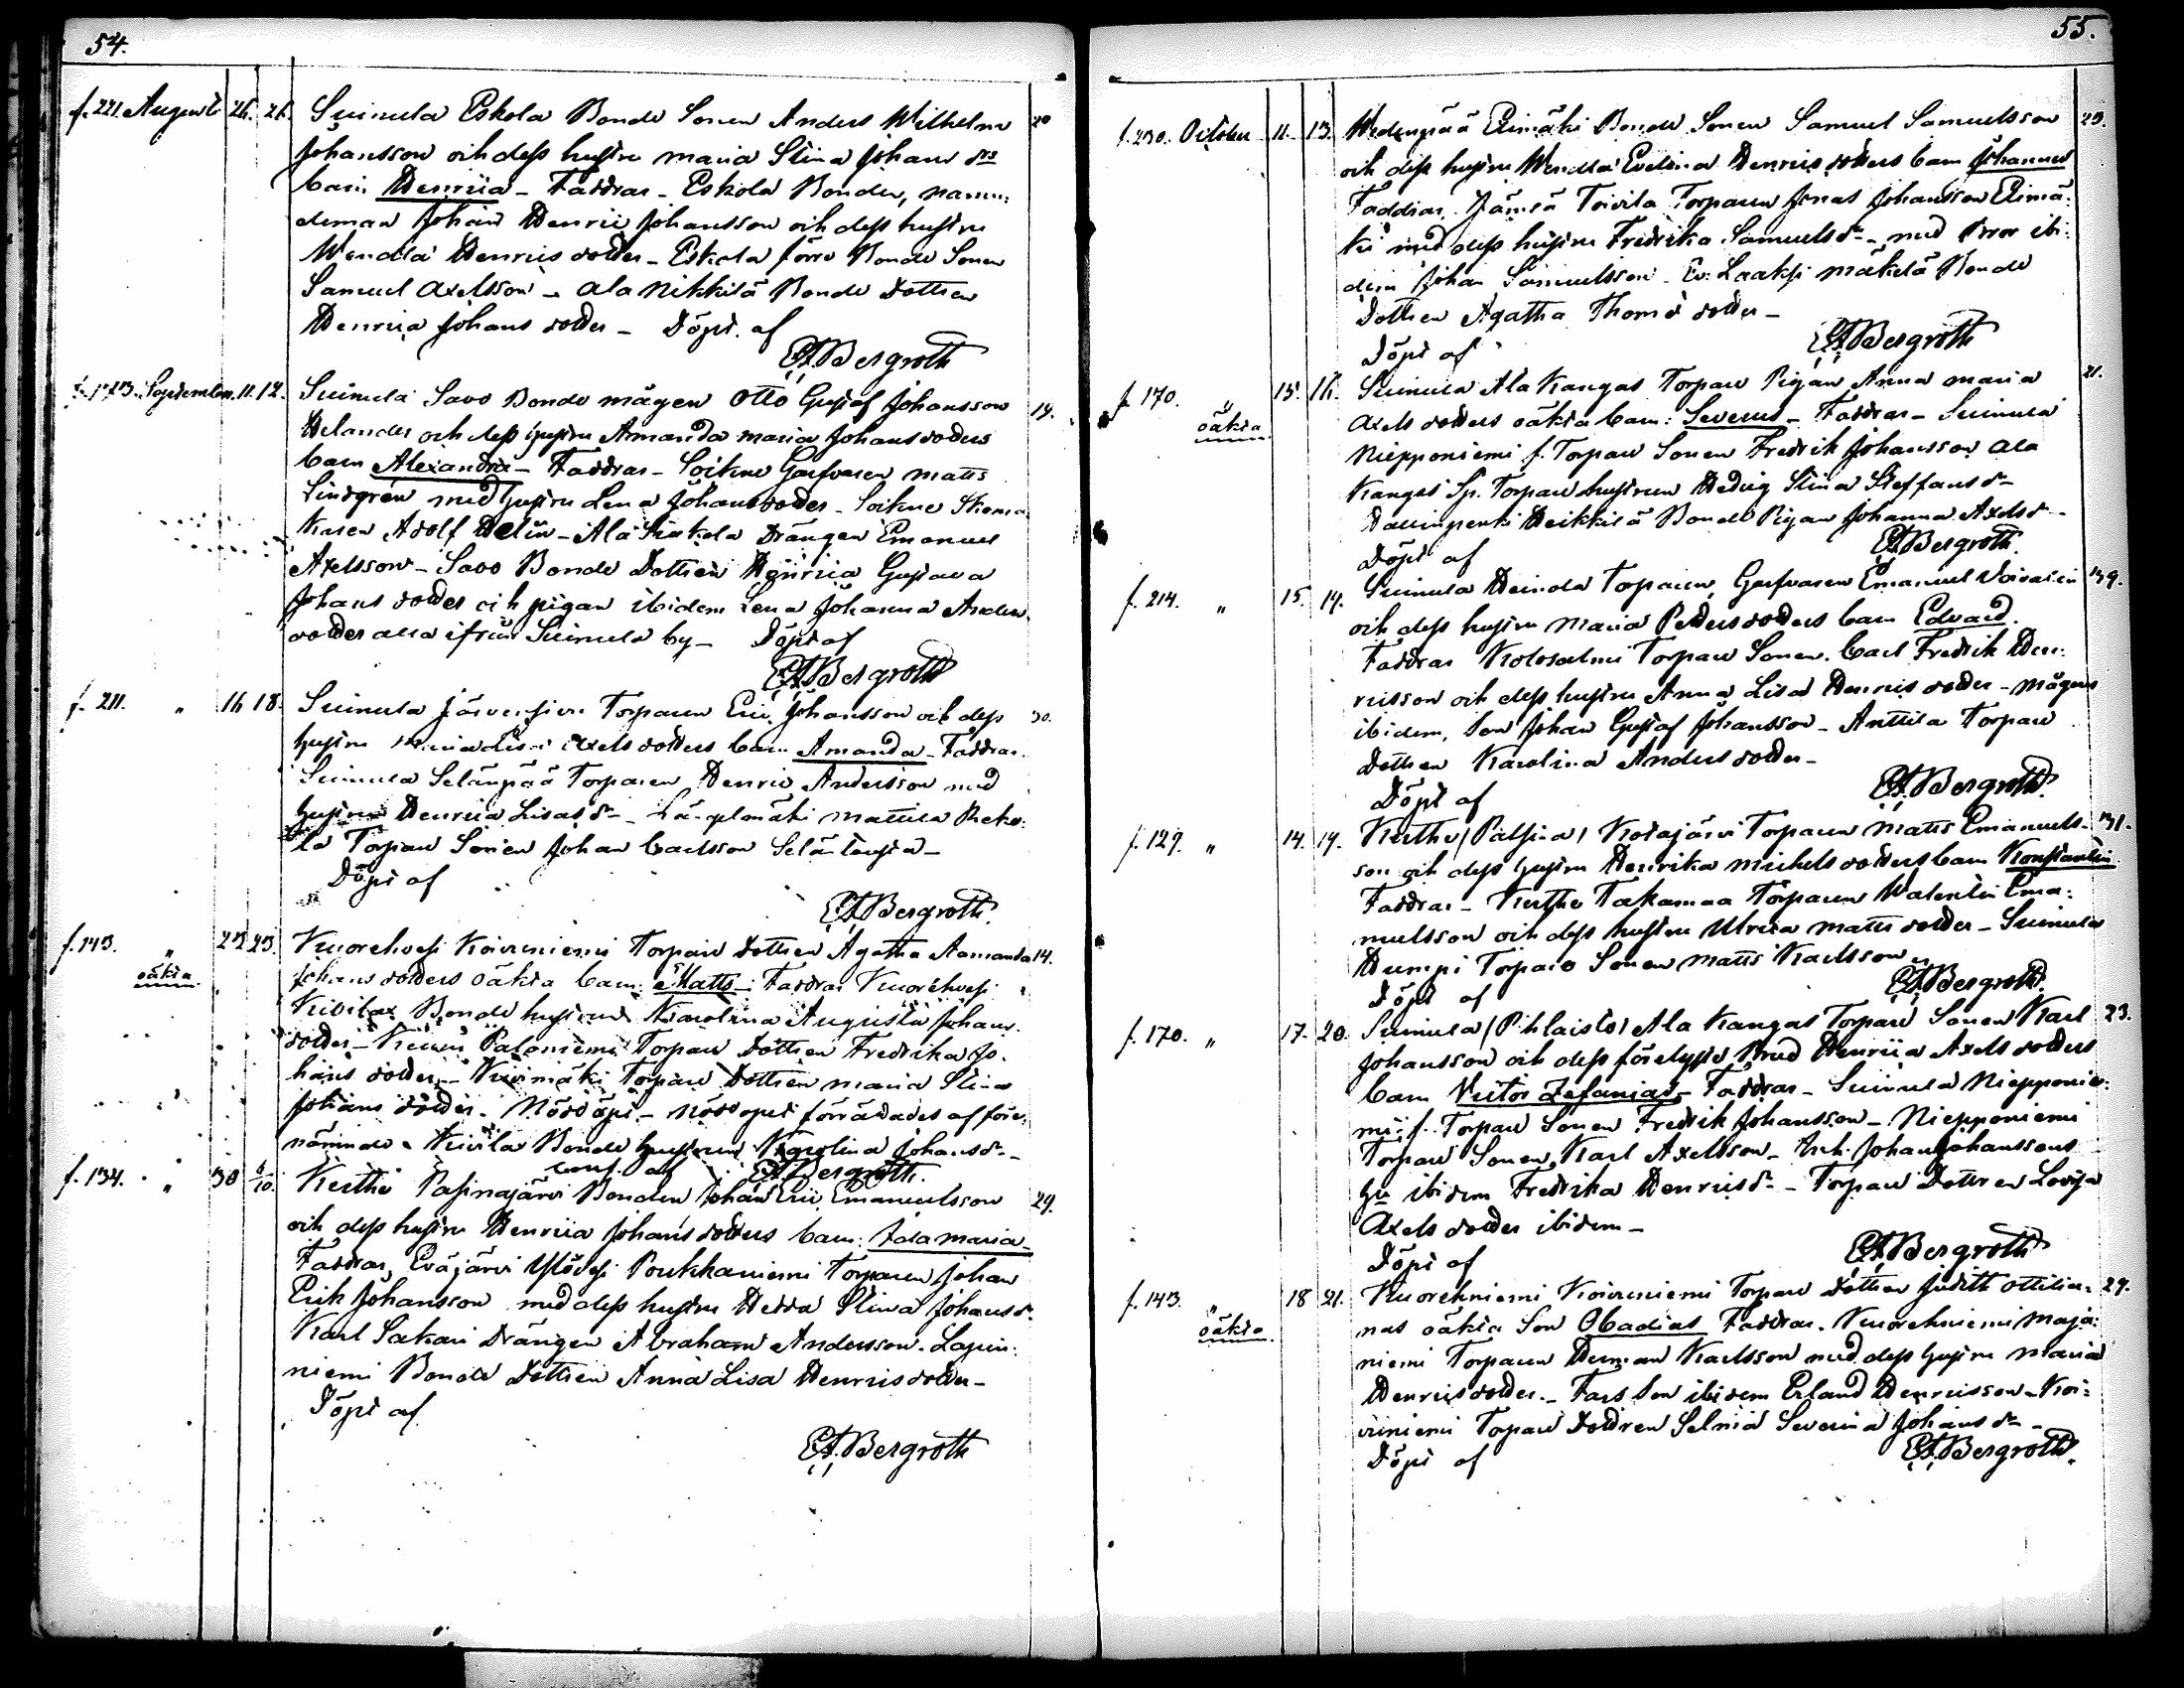 54.
f. 221. Augusti 26. 26. Suinula Eskola Bonde Sonen Anders Wilhelm 20
Johansson och dess hustru Maria Stina Johans drs
barn Henrica - Faddrar - Eskola Bonden, näm:
deman Johan Henric Johansson och dess hustru
Wendla Henrics dotter - Eskola förre Bonde Sonen
Samuel Axelsson - Ala Nikkilä Bonde Dottren
Henrica Johans dotter - Döpt af
EABergroth
September 11. 12. Suinula Savo Bonde mågen Otto Gustaf Johansson 19.
Helander och dess hustru Amanda Maria Johansdotters
barn Alexandra - Faddrar - Garfvaren Matts
Lindgrén med hustru Lena Johansdotter - Skoma:
karen Adolf Helin - Ala Drängen Emanuel
Axelsson - Savo Bonde Dottren Henrica Gustava
Johans dotter och pigan ibidem Lena Johanna Anders
dotter alla ifrån Suinula by - Döpt af
EABergroth
f. 211. " 16 18. Suinula Järvensivu Torparen Eric Johansson och dess 30.
hustru Maria Lisa Axels dotters barn Amanda - Faddrar
Suinula Selänpää Torparen Henric Andersson med
hustru Henrica Lisas dr - Längelmäki Mattila Reko:
la Torpare Sonen Johan Carlsson
Döpt af
EABergroth.
f. 143. " 23 23. Kuorehvesi Koivuniemi Torpare Dottren Agatha Amanda 14.
oäkta Johans dotters oäkta barn: Matts - Faddrar Kuorehvesi
Bonde hustrun Karolina Augusta Johans
dotter - Paloniemi Torpare Dottren Fredrika Jo:
hans dotter - Torpare Dottren Maria Stina
Johans dotter. Nöddöpt - Nöddopet förrättades af före:
nämnde Bonde hustrun Karolina Johans dr -
conf. af EABergroth.
f. 134. " 30 6/10. Kerthe Pasinajärvi Bonden Johan Eric Emanuelsson 29.
och dess hustru Henrica Johans dotters barn: Ida Maria -
Faddrar, Eväjärvi Poukkaniemi Torparen Johan
Erik Johansson med dess hustru Hedda Stina Johans dr.
Karl Sakari Drängen Abraham Andersson. Lapin:
niemi Bonde Dottren Anna Lisa Henricsdotter -
Döpt af
EABergroth
55.
f. 230. October 11. 13. Wedenpää Elimäki Bonde Sonen Samuel Samuelsson 23.
och dess hustru Wendla Evelina Henrics dotters barn Johannes
Faddrar, Jämsä Toivila Torparen Jonas Johansson Elimä:
ki med dess hustru Fredrika Samuels dr - med Bror ibi:
dem Johan Samuelsson - Ev: Laaksi Mäkelä Bonde
Dottren Agatha Thomé dotter -
Döpt af EABergroth
f. 170. " 15. 16. Suinula Ala Kangas Torpare Pigan Anna Maria 21.
oäkta Axels dotters oäkta barn: Severus - Faddrar - Suinula
Niepponiemi f. Torpare Sonen Fredrik Johansson Ala
Kangas Sp. Torpare hustrun Hedvig Stina Steffans dr -
Heikkilä Bonde Pigan Johanna Axels dr -
Döpt af EABergroth.
f. 214. " 15. 19. Suinula Heinola Torparen, Garfvaren Emanuel 39.
och dess hustru Maria Peders dotters barn Edvard.
Faddrar Kolosalmi Torpare Sonen Carl Fredrik Hen:
ricsson och dess hustru Anna Lisa Henrics dotter - Mågens
ibidem, Son Johan Gustaf Johansson - Anttila Torpare
Dottren Karolina Anders dotter -
Döpt af EABergroth.
f. 129. " 14. 19. Kerthe / Patsina / Kotajärvi Torparen Matts Emanuels- 31.
son och dess hustru Henrika Michels dotters barn Konstantin
Faddrar - Kerthe Takamaa Torparen Walentin Ema:
nuelsson och dess hustru Ulrica Matts dotter - Suinula
Humpi Torpare Sonen Matts Karlsson
Döpt af EABergroth.
f. 170. " 17. 20. Suinula / Pihlaisto / Ala Kangas Torpare Sonen Karl 23.
Johansson och dess förelyste Brud Henrica Axels dotters
barn Victor Zefanias - Faddrar - Suinula Nieppponie:
mi f. Torpare Sonen Fredrik Johansson - Niepponiemi
Torpare Sonen, Karl Axelsson - Inh. Johan Johanssons
hu ibidem Fredrika Henrics dr - Torpare Dottren Lovisa
Axels dotter ibidem -
Döpt af EABergroth
f. 143. " 18 21. Kuorehniemi Koivuniemi Torpare Dottren Judith Ottilia- 29.
oäkta. nas oäkta Son Obadias Faddrar. Kuorehniemi Maja:
niemi Torparen Herman Karlsson med dess hustru Maria
Henricsdotter. - Fars Son ibidem Erland Henricsson - Koi:
vuniemi Torpare Dottren Selma Severina Johans dr -
Döpt af EABergroth.